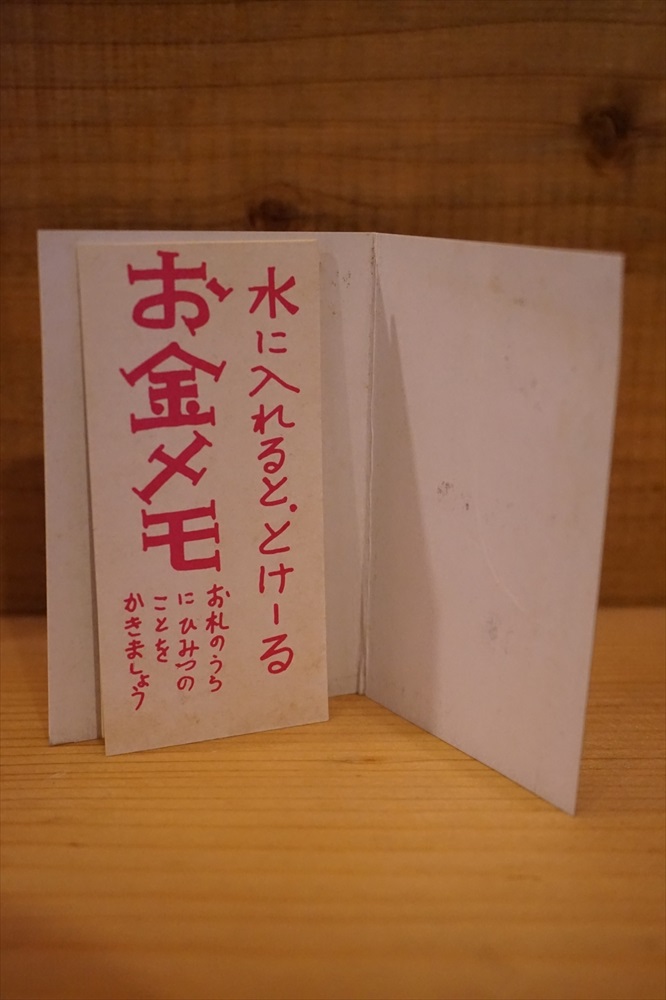 水に入れると、とけーる
お金メモ
お札のうら
にひみつの
ことを
かきましょう